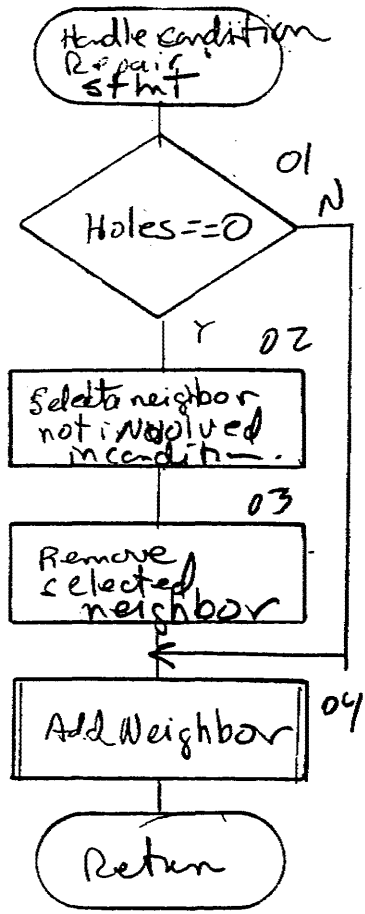 Handle condition
Repair
stmt
01
Holes==0
N
Y
02
Select a neighbor
not involved
in condition.
03
Remove
selected
neighbor
04
Add Neighbor
Return